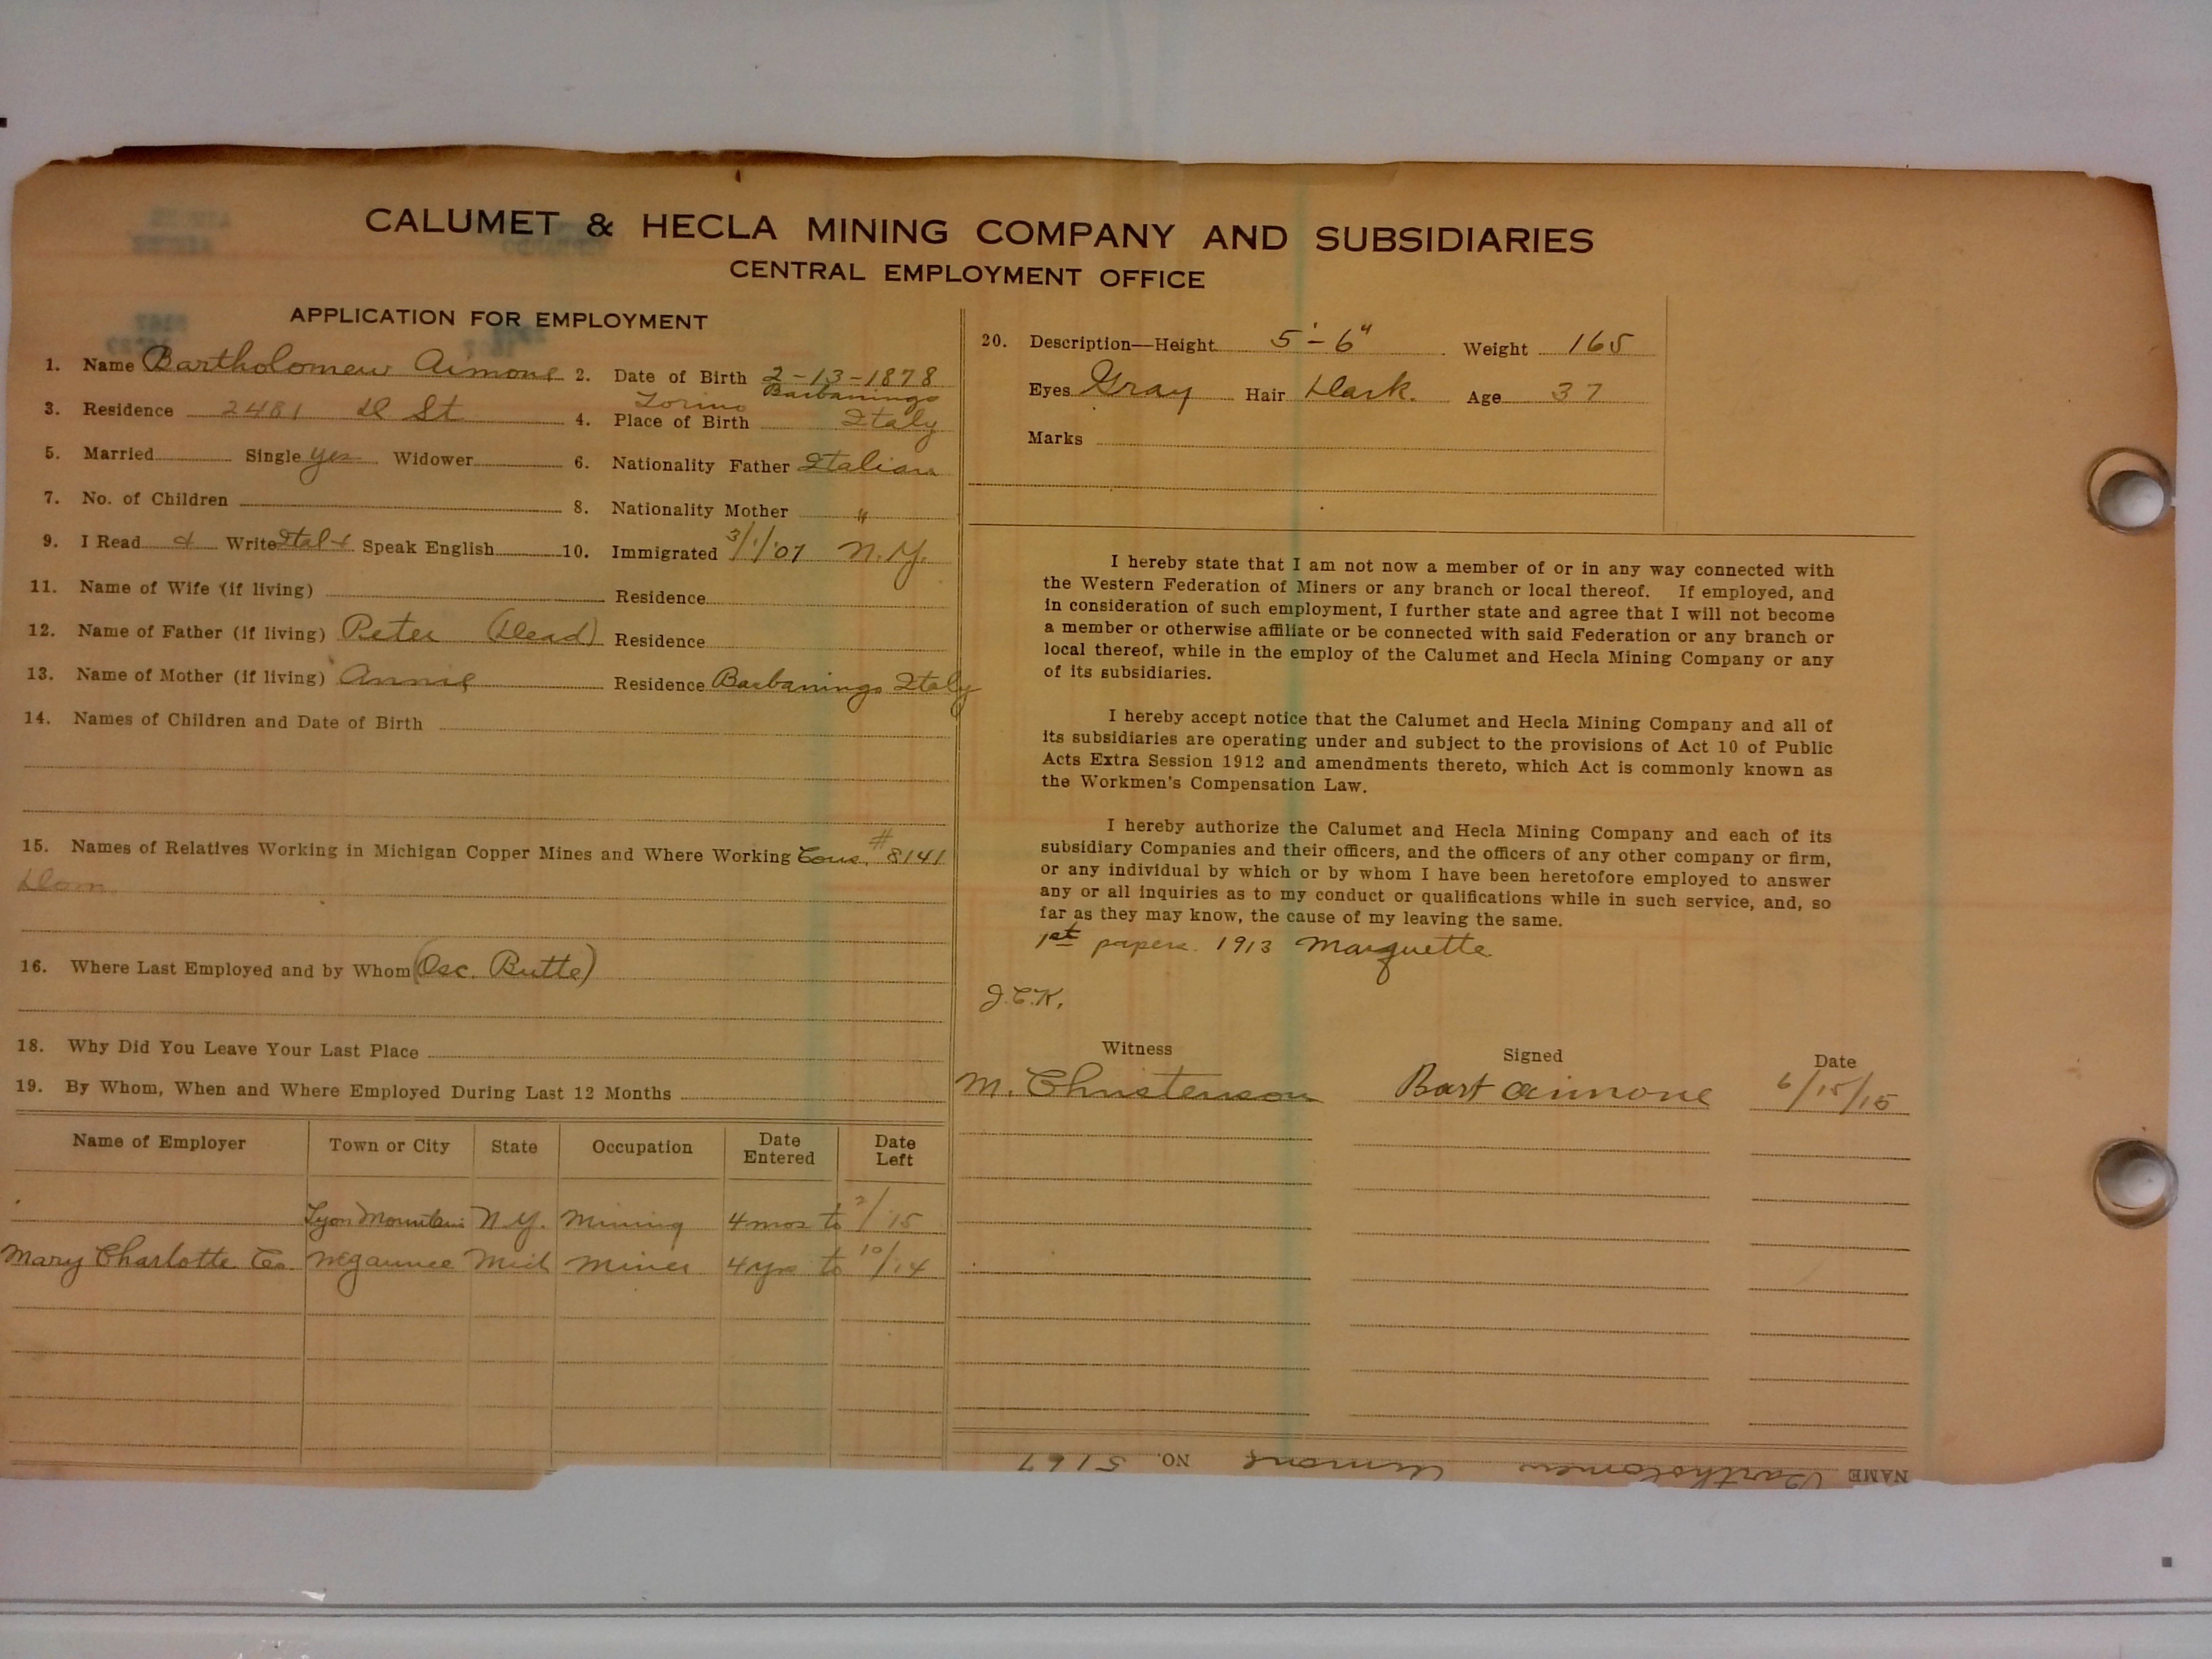 CALUMET & HECLA MINING COMPANY AND SUBSIDIARIES
CENTRAL EMPLOYMENT OFFICE
APPLICATION FOR EMPLOYMENT
1. Name Bartholomew Aimone 2. Date of Birth 2-13-1878
Torino Barbaningo
3. Residence 2481 D St 4. Place of Birth Italy
5. Married Single yes Widower 6. Nationality Father Italian
7. No. of Children 8. Nationality Mother "
9. I Read & Write Ital & Speak English 10. Immigrated 3/1/07 N.Y.
11. Name of Wife (if living) Residence
12. Name of Father (if living) Peter (Dead) Residence
13. Name of Mother (if living) Annie Residence Barbaningo Italy
14. Names of Children and Date of Birth
15. Names of Relatives Working in Michigan Copper Mines and Where Working Cous. #8141
Dom.
16. Where Last Employed and by Whom (Osc. Butte)
18. Why Did You Leave Your Last Place
19. By Whom, When and Where Employed During Last 12 Months
Name of Employer Town or City State Occupation Date Entered Date Left
Lyon Mountain N.Y. Mining 4 mos to 2/15
Mary Charlotte Co. Negaunee Mich Miner 4 yrs to 10/14
20. Description—Height 5'-6" Weight 165
Eyes Gray Hair Dark. Age 37
Marks
I hereby state that I am not now a member of or in any way connected with
the Western Federation of Miners or any branch or local thereof. If employed, and
in consideration of such employment, I further state and agree that I will not become
a member or otherwise affiliate or be connected with said Federation or any branch or
local thereof, while in the employ of the Calumet and Hecla Mining Company or any
of its subsidiaries.
I hereby accept notice that the Calumet and Hecla Mining Company and all of
its subsidiaries are operating under and subject to the provisions of Act 10 of Public
Acts Extra Session 1912 and amendments thereto, which Act is commonly known as
the Workmen's Compensation Law.
I hereby authorize the Calumet and Hecla Mining Company and each of its
subsidiary Companies and their officers, and the officers of any other company or firm,
or any individual by which or by whom I have been heretofore employed to answer
any or all inquiries as to my conduct or qualifications while in such service, and, so
far as they may know, the cause of my leaving the same.
1st papers. 1913 Marquette
J.C.K.
Witness Signed Date
M. Christenson Bart Aimone 6/15/15
NAME Bartholomew Aimone NO. 5167